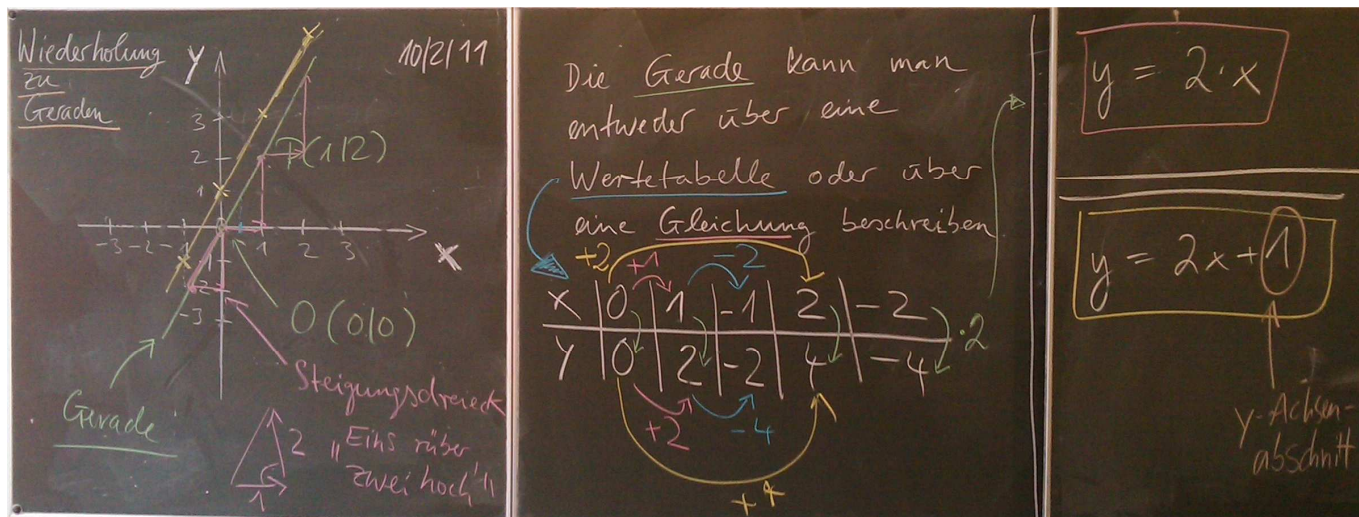 Wiederholung
zu
Geraden
10/2/11
y
3
2
1
-3 -2 -1 1 2 3
x
-1
-2
-3
P(1|2)
O(0|0)
Gerade
Steigungsdreieck
2
1
„Eins rüber
zwei hoch"
Die Gerade kann man
entweder über eine
Wertetabelle oder über
eine Gleichung beschreiben
+2 +1 -2
x 0 1 -1 2 -2
·2
y 0 2 -2 4 -4
+2 -4
+4
y = 2·x
y = 2x+1
y-Achsen-
abschnitt